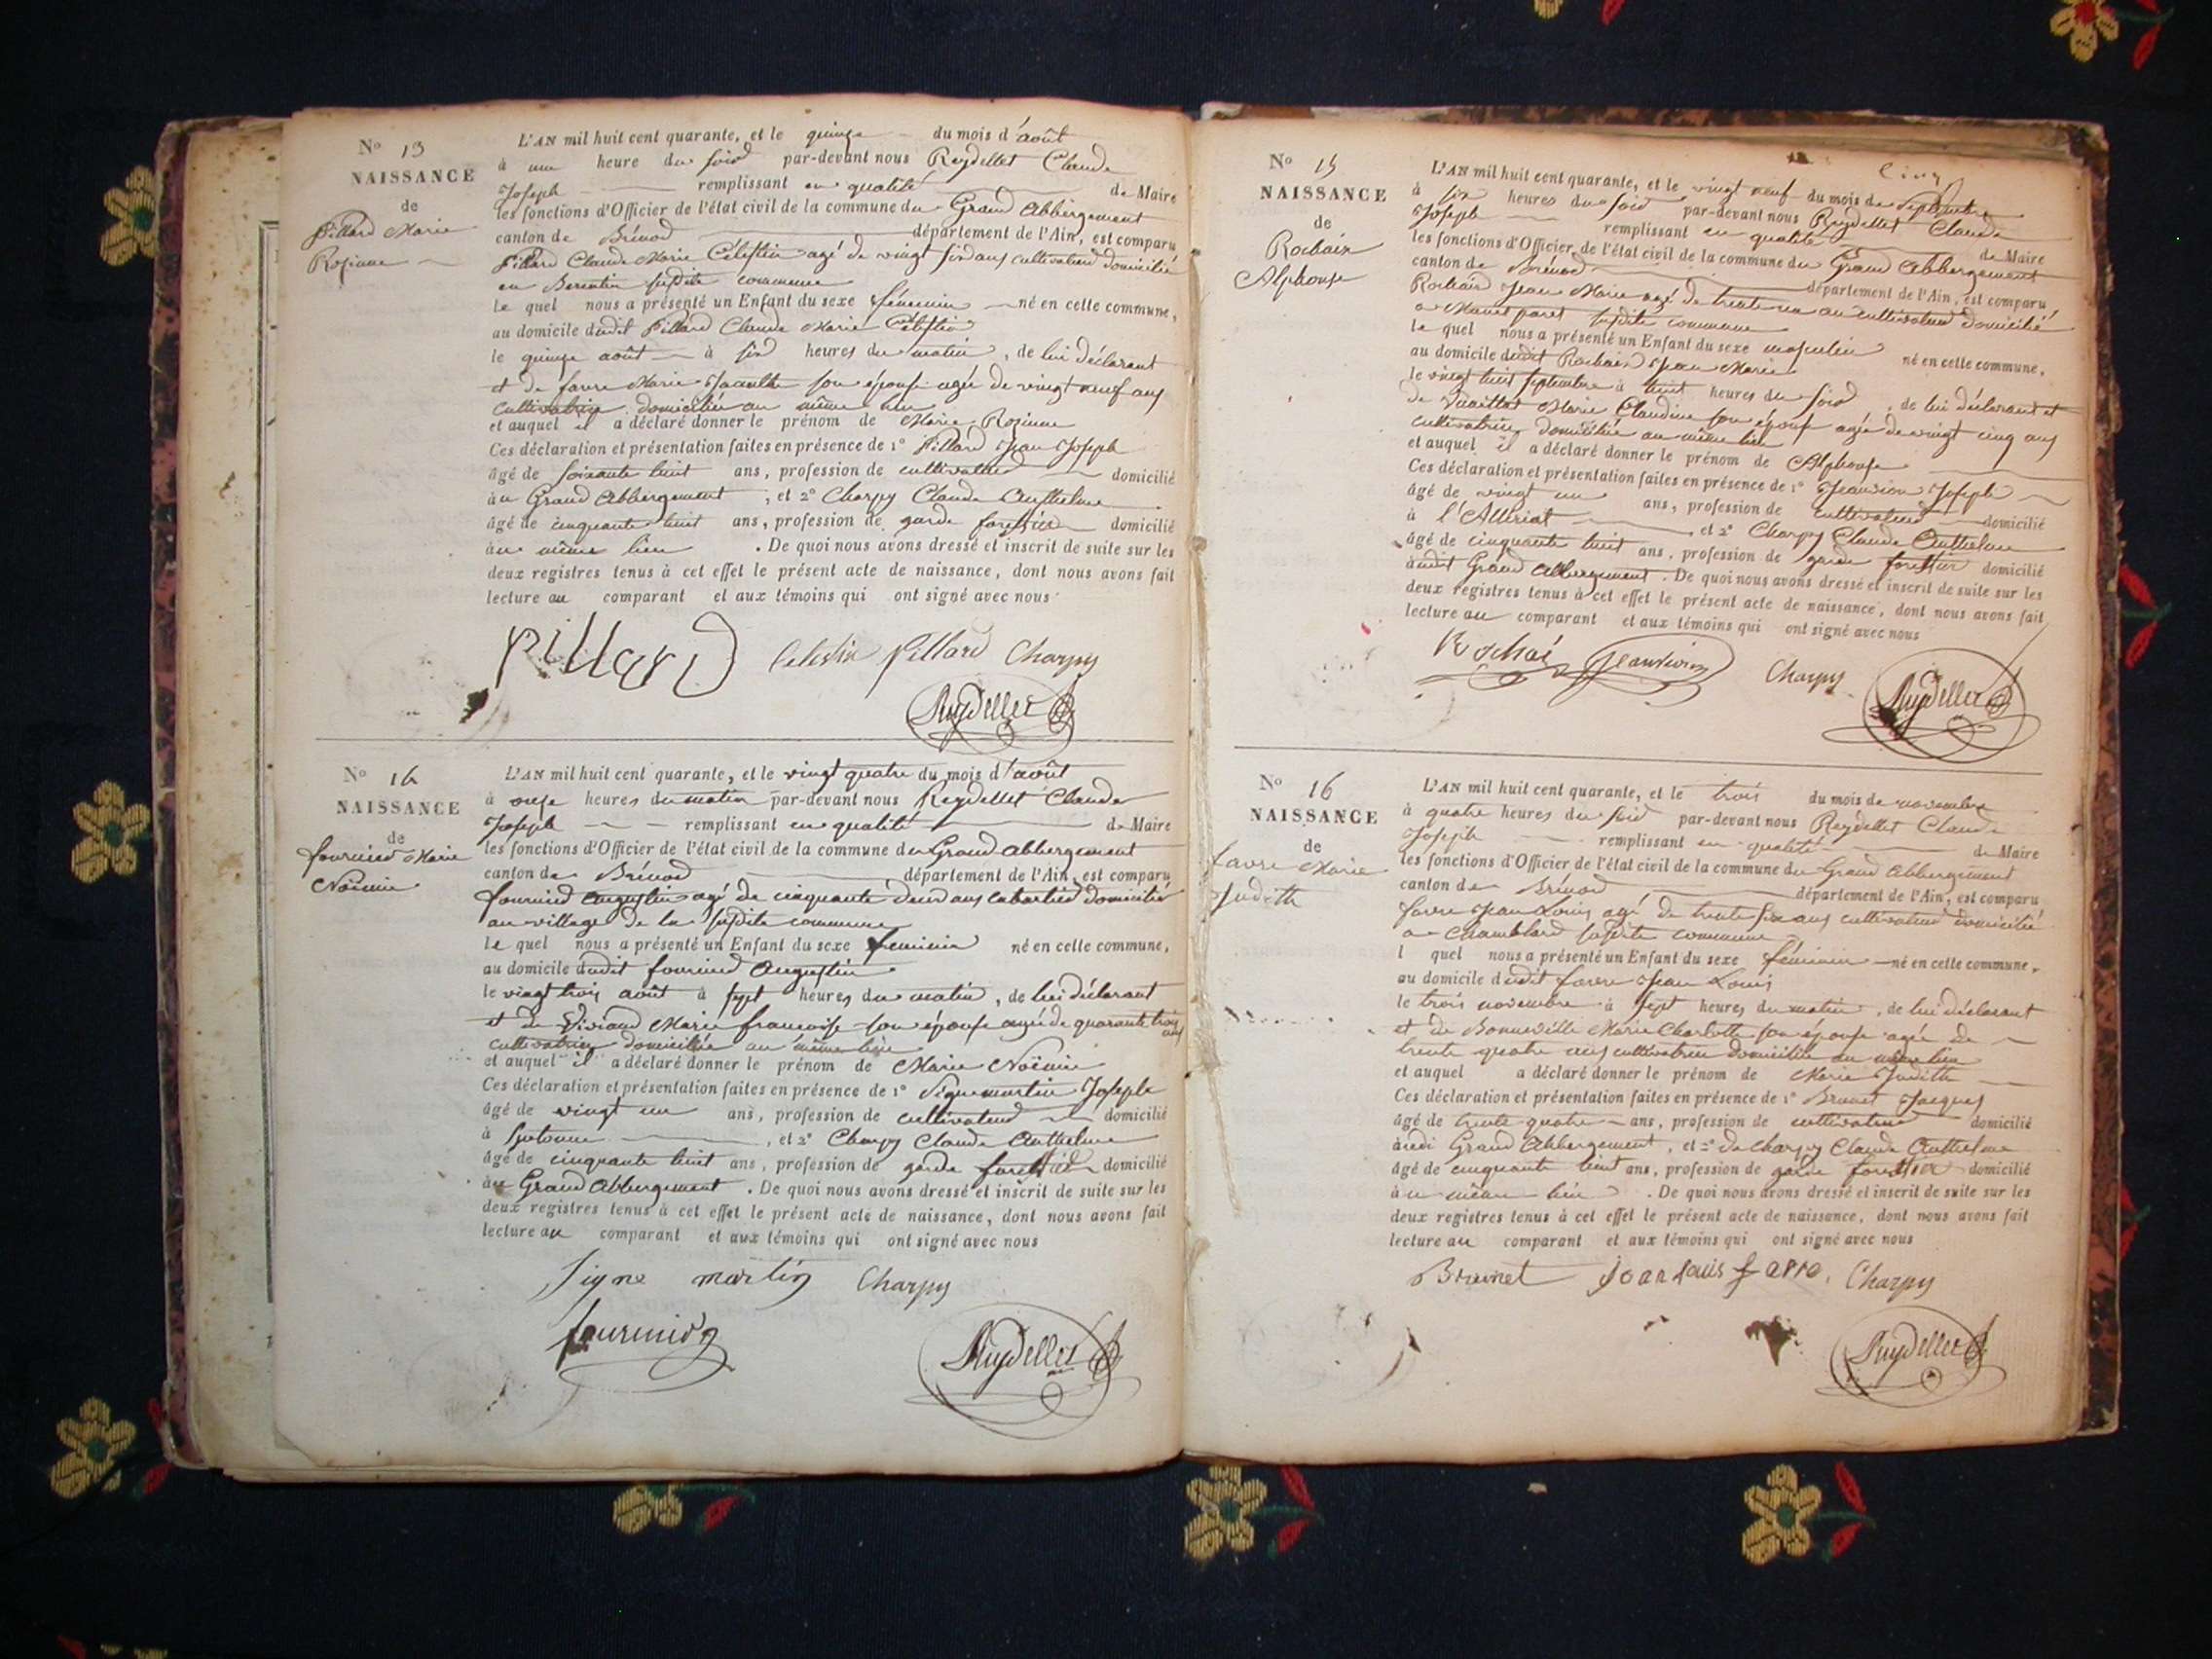 N° 13
NAISSANCE
de
Pillard Marie
Rosinne
L'AN mil huit cent quarante, et le quinze du mois d'août
à une heure du soir par-devant nous Reydellet Claude
Joseph remplissant en qualité de Maire
les fonctions d'Officier de l'état civil de la commune du Grand Abbergement
canton de Brénod département de l'Ain, est comparu
Pillard Claude Marie Célestin agé de vingt six ans cultivateur domicilié
en susdite commune
le quel nous a présenté un Enfant du sexe féminin né en cette commune,
au domicile dudit Pillard Claude Marie Célestin
le quinze août à six heures du matin, de lui déclarant
et de favre Marie son épouse agée de vingt neuf ans
cultivatrice domiciliée au même lieu
et auquel il a déclaré donner le prénom de Marie Rosinne
Ces déclaration et présentation faites en présence de 1° Pillard Jean Joseph
âgé de soixante huit ans, profession de cultivateur domicilié
au Grand Abbergement ; et 2° Charpy Claude Anthelme
âgé de cinquante huit ans, profession de garde forestier domicilié
au même lieu . De quoi nous avons dressé et inscrit de suite sur les
deux registres tenus à cet effet le présent acte de naissance, dont nous avons fait
lecture au comparant et aux témoins qui ont signé avec nous
Pillard Celestin Pillard Charpy
Reydellet
N° 14
NAISSANCE
de
fournier Marie
Noëmie
L'AN mil huit cent quarante, et le vingt quatre du mois d'août
à onze heures du matin par-devant nous Reydellet Claude
Joseph remplissant en qualité de Maire
les fonctions d'Officier de l'état civil de la commune du Grand abbergement
canton de Brénod département de l'Ain, est comparu
fournier Augustin agé de cinquante deux ans cabartier domicilié
au village de la susdite commune
le quel nous a présenté un Enfant du sexe feminin né en cette commune,
au domicile dudit fournier Augustin
le vingt trois août à sept heures du matin, de lui déclarant
et de Viviand Marie francoise son épouse agée de quarante trois
ans
cultivatrice domiciliée au même lieu
et auquel il a déclaré donner le prénom de Marie Noëmie
Ces déclaration et présentation faites en présence de 1° Signemartin Joseph
âgé de vingt un ans, profession de cultivateur domicilié
à , et 2° Charpy Claude Anthelme
âgé de cinquante huit ans, profession de garde forestier domicilié
au Grand Abbergement . De quoi nous avons dressé et inscrit de suite sur les
deux registres tenus à cet effet le présent acte de naissance, dont nous avons fait
lecture au comparant et aux témoins qui ont signé avec nous
Signe martin Charpy
fournier
Reydellet
cinq
N° 15
NAISSANCE
de
Rochaix
Alphonse
L'AN mil huit cent quarante, et le vingt neuf du mois de septembre
à six heures du soir par-devant nous Reydellet Claude
Joseph remplissant en qualité de Maire
les fonctions d'Officier de l'état civil de la commune du Grand Abbergement
canton de Brénod département de l'Ain, est comparu
Rochaix Jean Marie agé de trente un an cultivateur domicilié
a susdite commune
le quel nous a présenté un Enfant du sexe masculin né en cette commune,
au domicile dudit Rochaix Jean Marie
le vingt huit septembre à huit heures du soir, de lui déclarant et
de Marie Claudine son épouse agée de vingt cinq ans
cultivatrice domiciliée au même lieu
et auquel il a déclaré donner le prénom de Alphonse
Ces déclaration et présentation faites en présence de 1° Joseph
âgé de vingt un ans, profession de cultivateur domicilié
à l'Allériat et 2° Charpy Claude Anthelme
âgé de cinquante huit ans, profession de garde forestier domicilié
audit Grand Abbergement . De quoi nous avons dressé et inscrit de suite sur les
deux registres tenus à cet effet le présent acte de naissance, dont nous avons fait
lecture au comparant et aux témoins qui ont signé avec nous
Charpy Reydellet
N° 16
NAISSANCE
de
favre Marie
Judith
L'AN mil huit cent quarante, et le trois du mois de novembre
à quatre heures du soir par-devant nous Reydellet Claude
Joseph remplissant en qualité de Maire
les fonctions d'Officier de l'état civil de la commune du Grand Abbergement
canton de Brénod département de l'Ain, est comparu
favre Jean Louis agé de trente six ans cultivateur domicilié
a Chamblard susdite commune
l quel nous a présenté un Enfant du sexe féminin né en cette commune,
au domicile dudit favre Jean Louis
le trois novembre à sept heures du matin, de lui déclarant
et de Bonneville Marie Charlotte son épouse agée de
trente quatre ans cultivatrice domiciliée au même lieu
et auquel a déclaré donner le prénom de Marie Judith
Ces déclaration et présentation faites en présence de 1° Brunet Jacques
âgé de trente quatre ans, profession de cultivateur domicilié
audi Grand Abbergement, et 2° de Charpy Claude Anthelme
âgé de cinquante huit ans, profession de garde forestier domicilié
au même lieu . De quoi nous avons dressé et inscrit de suite sur les
deux registres tenus à cet effet le présent acte de naissance, dont nous avons fait
lecture au comparant et aux témoins qui ont signé avec nous
Brunet jean Louis favre, Charpy
Reydellet